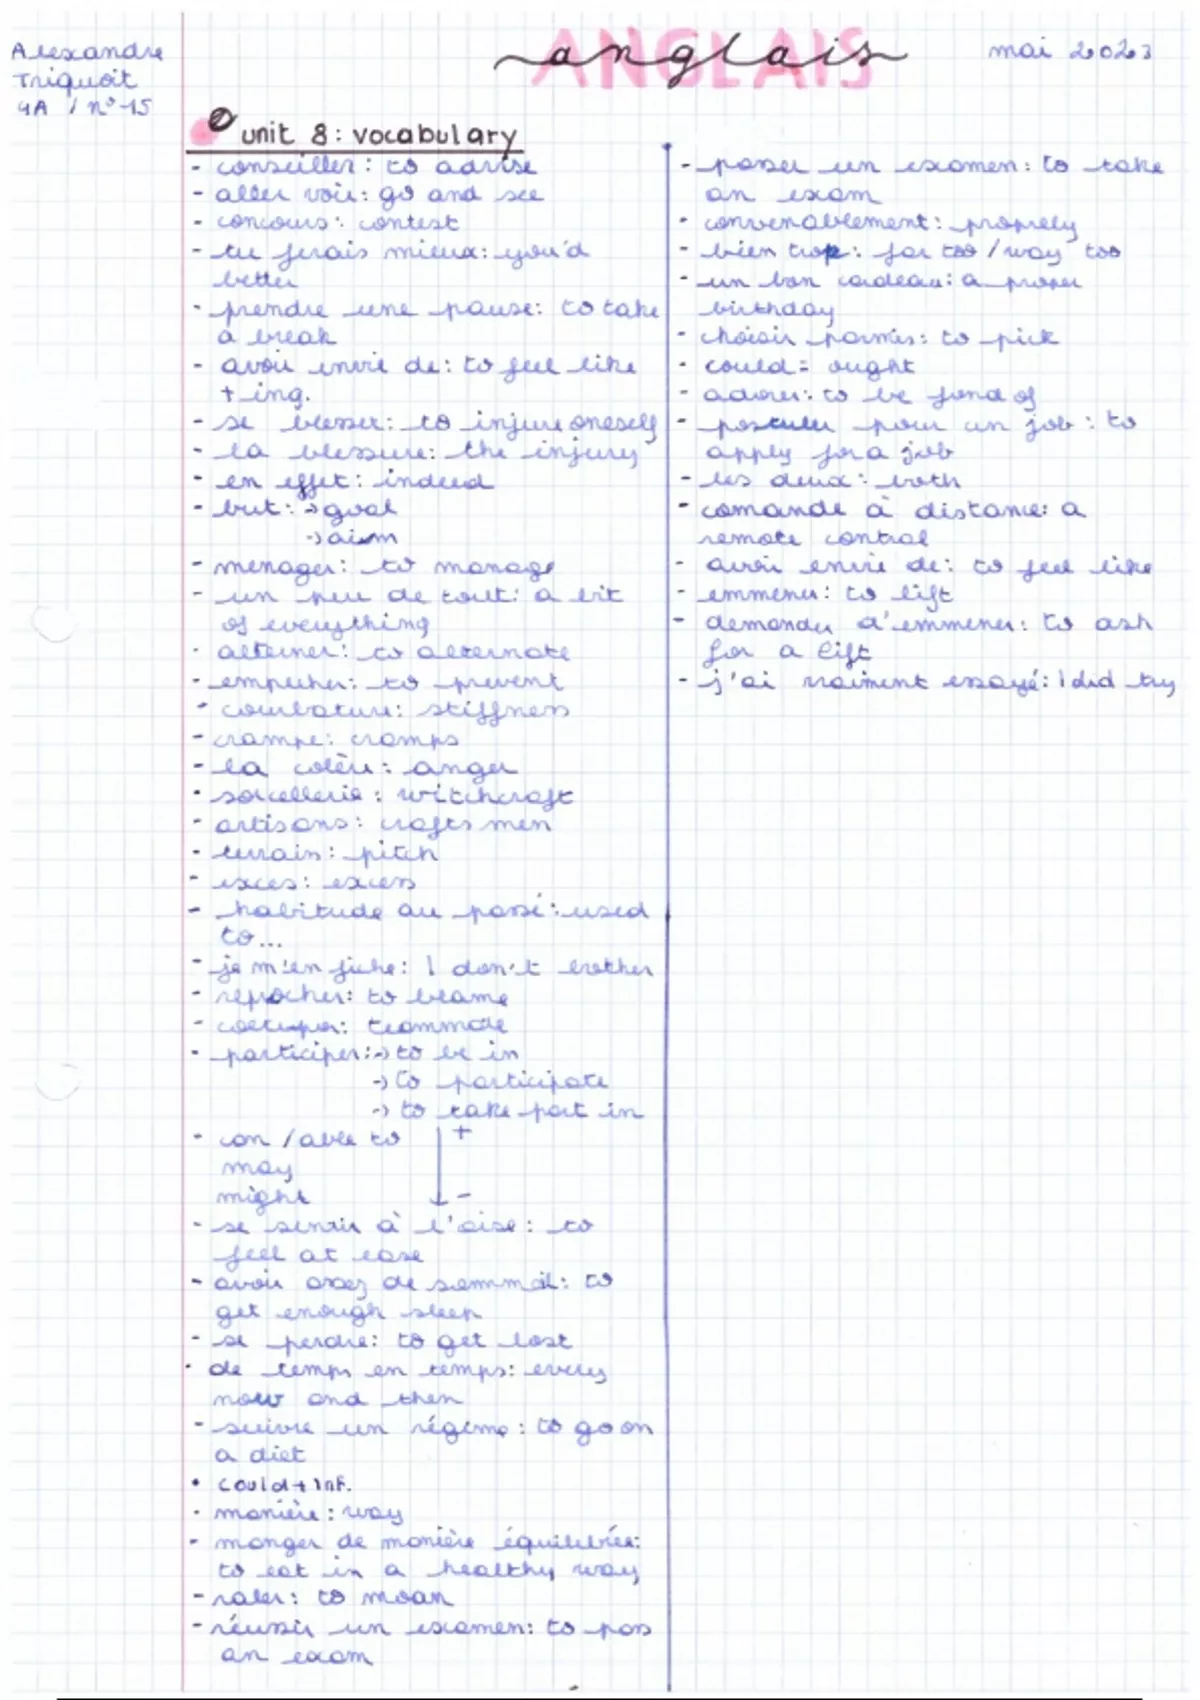 Alexandre
Triquoit
4A / n°15
ANGLAIS
anglais
mai 2023
unit 8: vocabulary
- conseiller: to advise
- aller voir: go and see
- concours: contest
- tu ferais mieux: you'd
better
- prendre une pause: to take
a break
- avoir envie de: to feel like
+ ing.
- se blesser: to injure oneself
- la blessure: the injury
- en effet: indeed
- but: → goal
→ aim
- menager: to manage
- un peu de tout: a bit
of everything
- alterner: to alternate
- empecher: to prevent
- courbature: stiffness
- crampe: cramps
- la colère: anger
- sorcellerie: witchcraft
- artisans: crafts men
- terrain: pitch
- exces: excess
- habitude au passé: used
to...
- je m'en fiche: I don't bother
- reprocher: to blame
- coéquipier: teammate
- participer: → to be in
→ to participate
→ to take part in
- can / able to
+
may
might
-
- se sentir à l'aise: to
feel at ease
- avoir assez de sommeil: to
get enough sleep
- se perdre: to get lost
- de temps en temps: every
now and then
- suivre un régime: to go on
a diet
• could + inf.
- manière: way
- manger de manière équilibrée:
to eat in a healthy way
- raler: to moan
- réussir un examen: to pass
an exam
- passer un examen: to take
an exam
- convenablement: properly
- bien trop: far too / way too
- un bon cadeau: a proper
birthday
- choisir parmis: to pick
- could = ought
- adorer: to be fond of
- postuler pour un job: to
apply for a job
- les deux: both
- comande à distance: a
remote control
- avoir envie de: to feel like
- emmener: to lift
- demander d'emmener: to ask
for a lift
- j'ai vraiment essayé: I did try